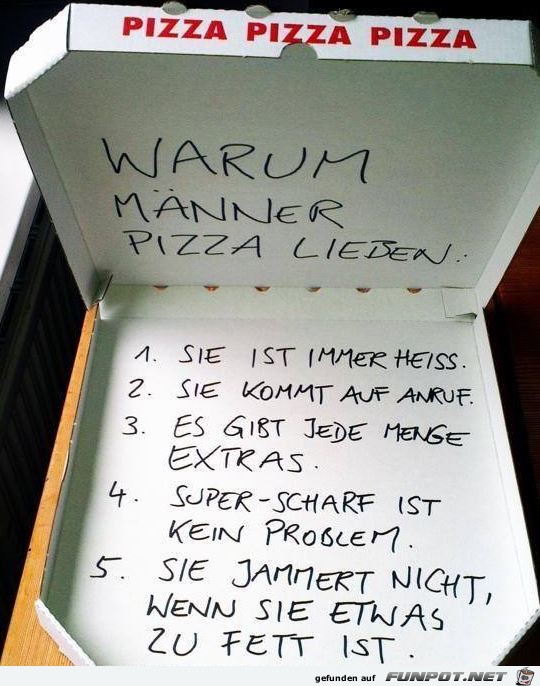 PIZZA PIZZA PIZZA
WARUM
MÄNNER
PIZZA LIEBEN:
1. SIE IST IMMER HEISS.
2. SIE KOMMT AUF ANRUF.
3. ES GIBT JEDE MENGE
EXTRAS.
4. SUPER-SCHARF IST
KEIN PROBLEM.
5. SIE JAMMERT NICHT,
WENN SIE ETWAS
ZU FETT IST.
gefunden auf FUNPOT.NET